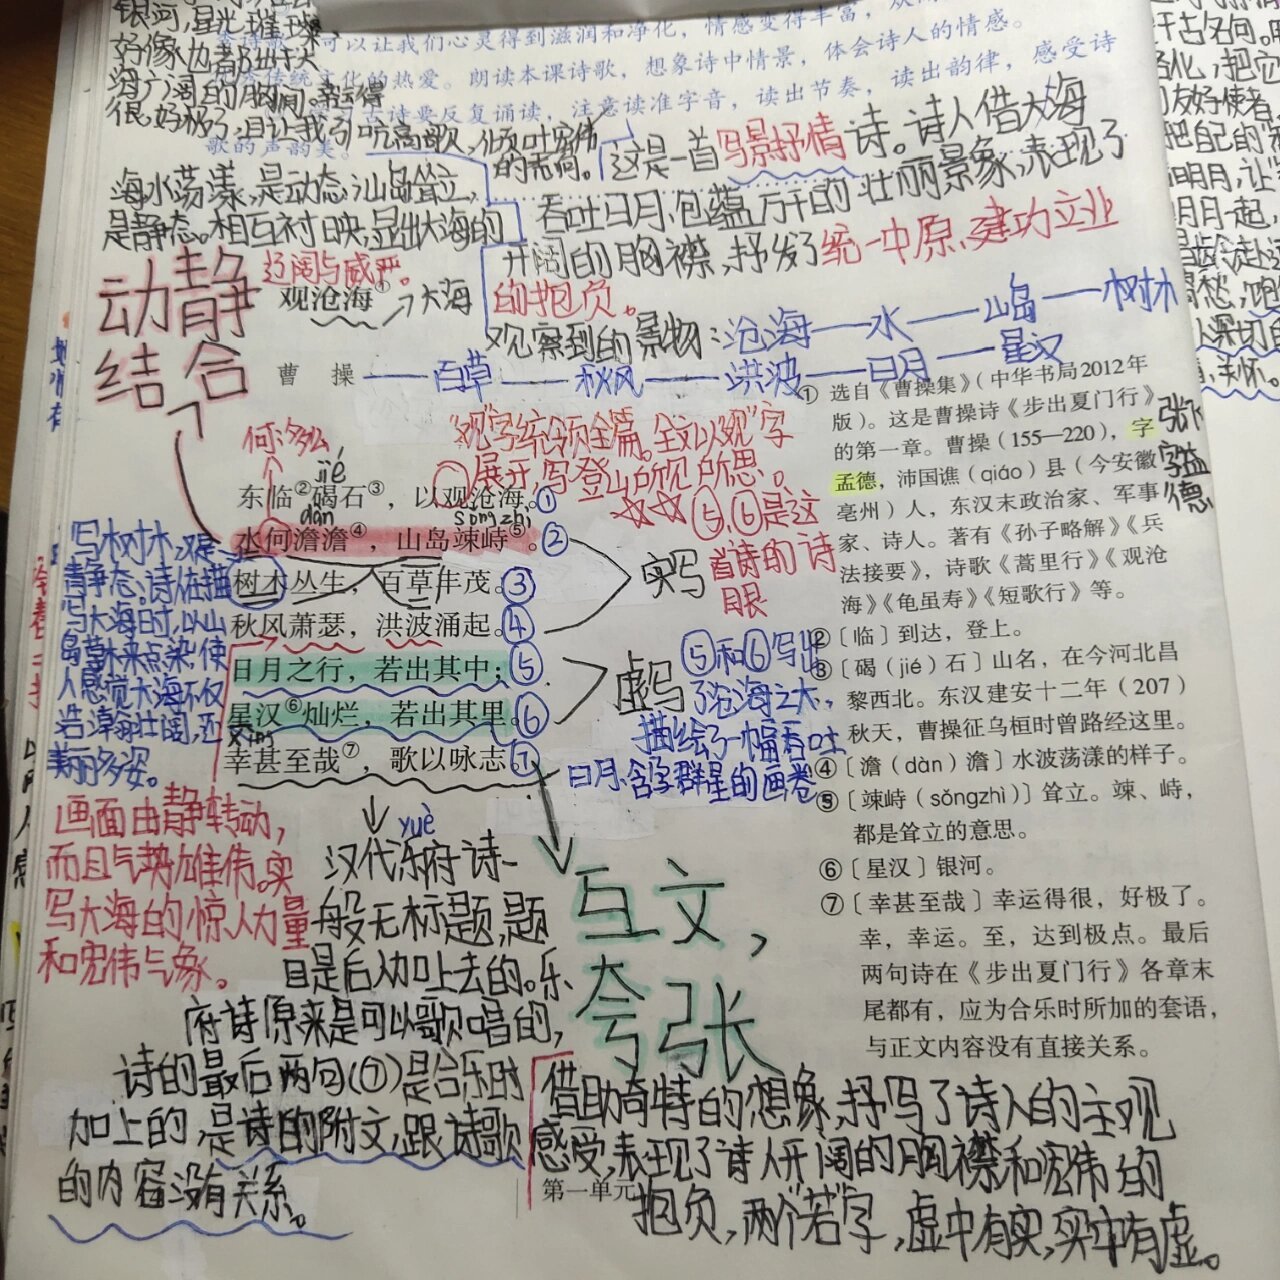 银河,星光璀璨,
好像也都出于大
海广阔的胸间。幸运得
很,好极了,且让我引吭高歌,
可以让我们心灵得到滋润和净化,情感变得丰富,
传统文化的热爱。朗读本课诗歌,想象诗中情景,体会诗人的情感。
古诗要反复诵读,注意读准字音,读出节奏,读出韵律,感受诗
歌的声韵美。
这是一首写景抒情诗。诗人借大海
吞吐日月,包蕴万千的壮丽景象,表现了
开阔的胸襟,抒发了统一中原、建功立业
的抱负。
海水荡漾,是动态;山岛耸立,
是静态。相互衬映,显出大海的
辽阔与威严。
动静
结合
观沧海①
大海
观察到的景物:沧海——水——山岛——树木
曹 操
百草——秋风——洪波——日月——星汉
"观"字统领全篇。全文以"观"字
展开,写登山所见所思。
☆☆⑤,⑥是这
首诗的诗
眼
何:多么
jié
东临②碣石③,以观沧海。①
dàn
sǒngzhì
水何澹澹④,山岛竦峙⑤。②
树木丛生,百草丰茂。③
秋风萧瑟,洪波涌起。④
日月之行,若出其中;⑤
星汉⑥灿烂,若出其里。⑥
幸甚至哉⑦,歌以咏志。⑦
实写
虚写
⑤和⑥写出
了沧海之大,
描绘了一幅吞吐
日月、含孕群星的画卷。
写木对木,又是
静态。诗人在描
写大海时,以山
岛草木来点染,使
人感觉大海不仅
浩淖翻壮阔,还
美丽多姿。
画面由静转动,
而且气势雄伟。实
写大海的惊人力量
和宏伟气象。
yuè
汉代乐府诗一
般无标题,题
目是后人加上去的。乐
府诗原来是可以歌唱的,
诗的最后两句(⑦)是合乐时
加上的,是诗的附文,跟诗歌
的内容没有关系。
互文,
夸张
借助奇特的想象,抒写了诗人的主观
感受,表现了诗人开阔的胸襟和宏伟的
抱负,两个"若"字,虚中有实,实中有虚。
第一单元
① 选自《曹操集》(中华书局2012年
版)。这是曹操诗《步出夏门行》
的第一章。曹操(155—220),字
孟德,沛国谯(qiáo)县(今安徽
亳州)人,东汉末政治家、军事
家、诗人。著有《孙子略解》《兵
法接要》,诗歌《蒿里行》《观沧
海》《龟虽寿》《短歌行》等。
②〔临〕到达,登上。
③〔碣(jié)石〕山名,在今河北昌
黎西北。东汉建安十二年(207)
秋天,曹操征乌桓时曾路经这里。
④〔澹(dàn)澹〕水波荡漾的样子。
⑤〔竦峙(sǒngzhì)〕耸立。竦、峙,
都是耸立的意思。
⑥〔星汉〕银河。
⑦〔幸甚至哉〕幸运得很,好极了。
幸,幸运。至,达到极点。最后
两句诗在《步出夏门行》各章末
尾都有,应为合乐时所加的套语,
与正文内容没有直接关系。
张飞
字益
德